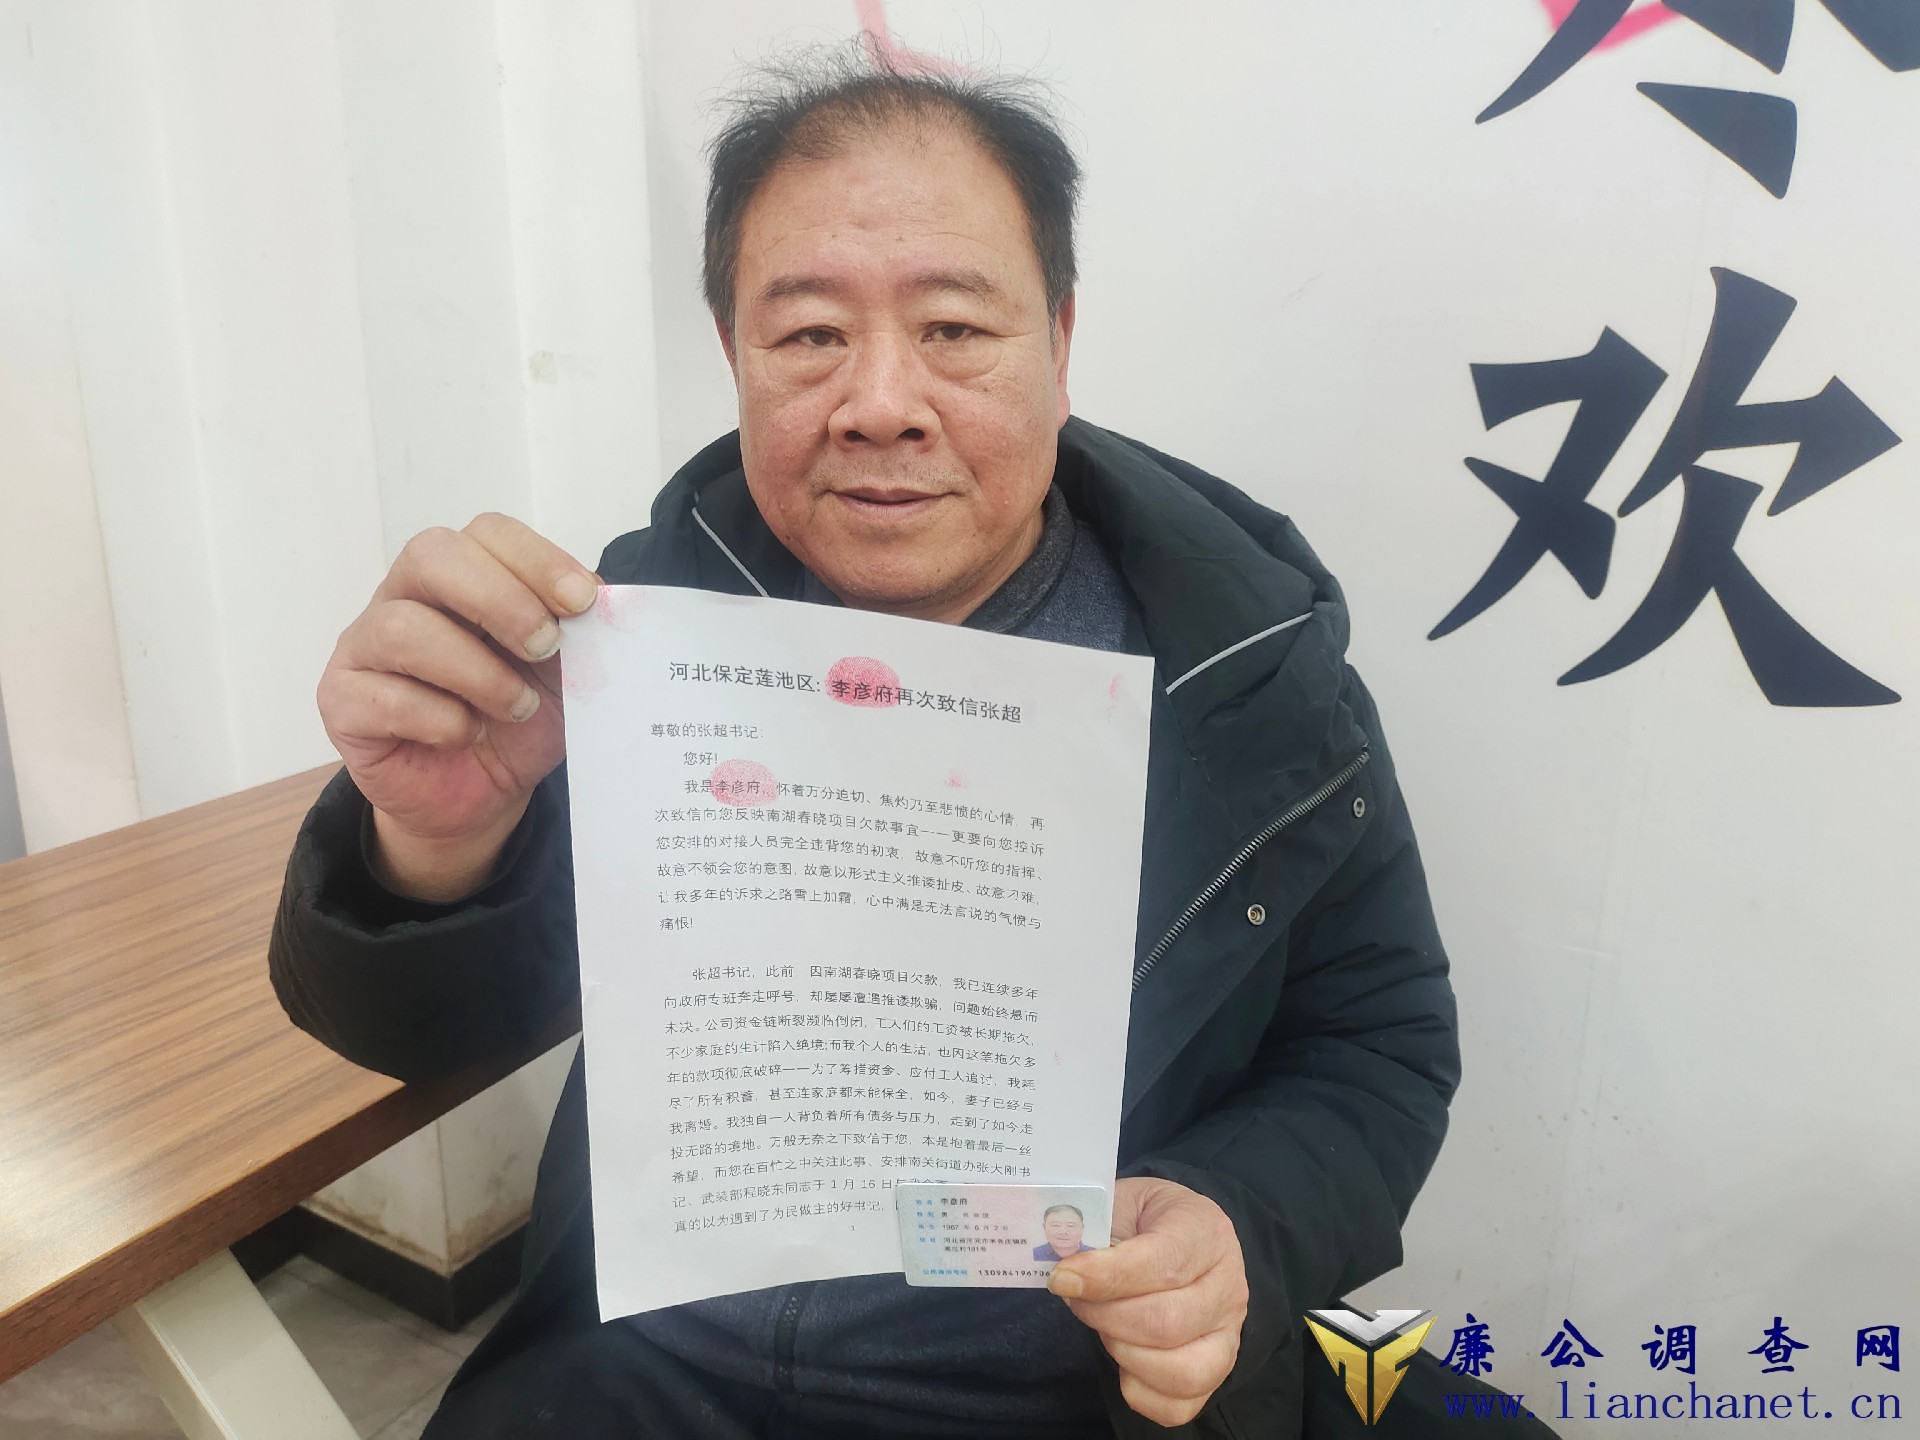 欢
河北保定莲池区:李彦府再次致信张超
尊敬的张超书记:
您好!
我是李彦府,怀着万分迫切、焦灼乃至悲愤的心情,再
次致信向您反映南湖春晓项目欠款事宜---更要向您控诉
您安排的对接人员完全违背您的初衷,故意不听您的指挥、
故意不领会您的意图,故意以形式主义推诿扯皮、故意刁难,
让我多年的诉求之路雪上加霜,心中满是无法言说的气愤与
痛恨!
张超书记,此前 因南湖春晓项目欠款,我已连续多年
向政府专班奔走呼号,却屡屡遭遇推诿欺骗,问题始终悬而
未决。公司资金链断裂濒临倒闭,工人们的工资被长期拖欠,
不少家庭的生计陷入绝境;而我个人的生活,也因这笔拖欠多
年的款项彻底破碎——为了筹措资金、应付工人追讨,我耗
尽了所有积蓄,甚至连家庭都未能保全,如今,妻子已经与
我离婚。我独自一人背负着所有债务与压力,走到了如今走
投无路的境地。万般无奈之下致信于您,本是抱着最后一丝
希望,而您在百忙之中关注此事、安排南关街道办张大刚书
记、武装部程晓东同志于1月16日与我会面
真的以为遇到了为民做主的好书记,
1
姓名 李彦府
性别 男 民族 汉
出生 1967 年 6 月 2 日
住址 河北省河间市米各庄镇西
村191号
公民身份号码 130984196706
廉公调查网
www.lianchanet.cn